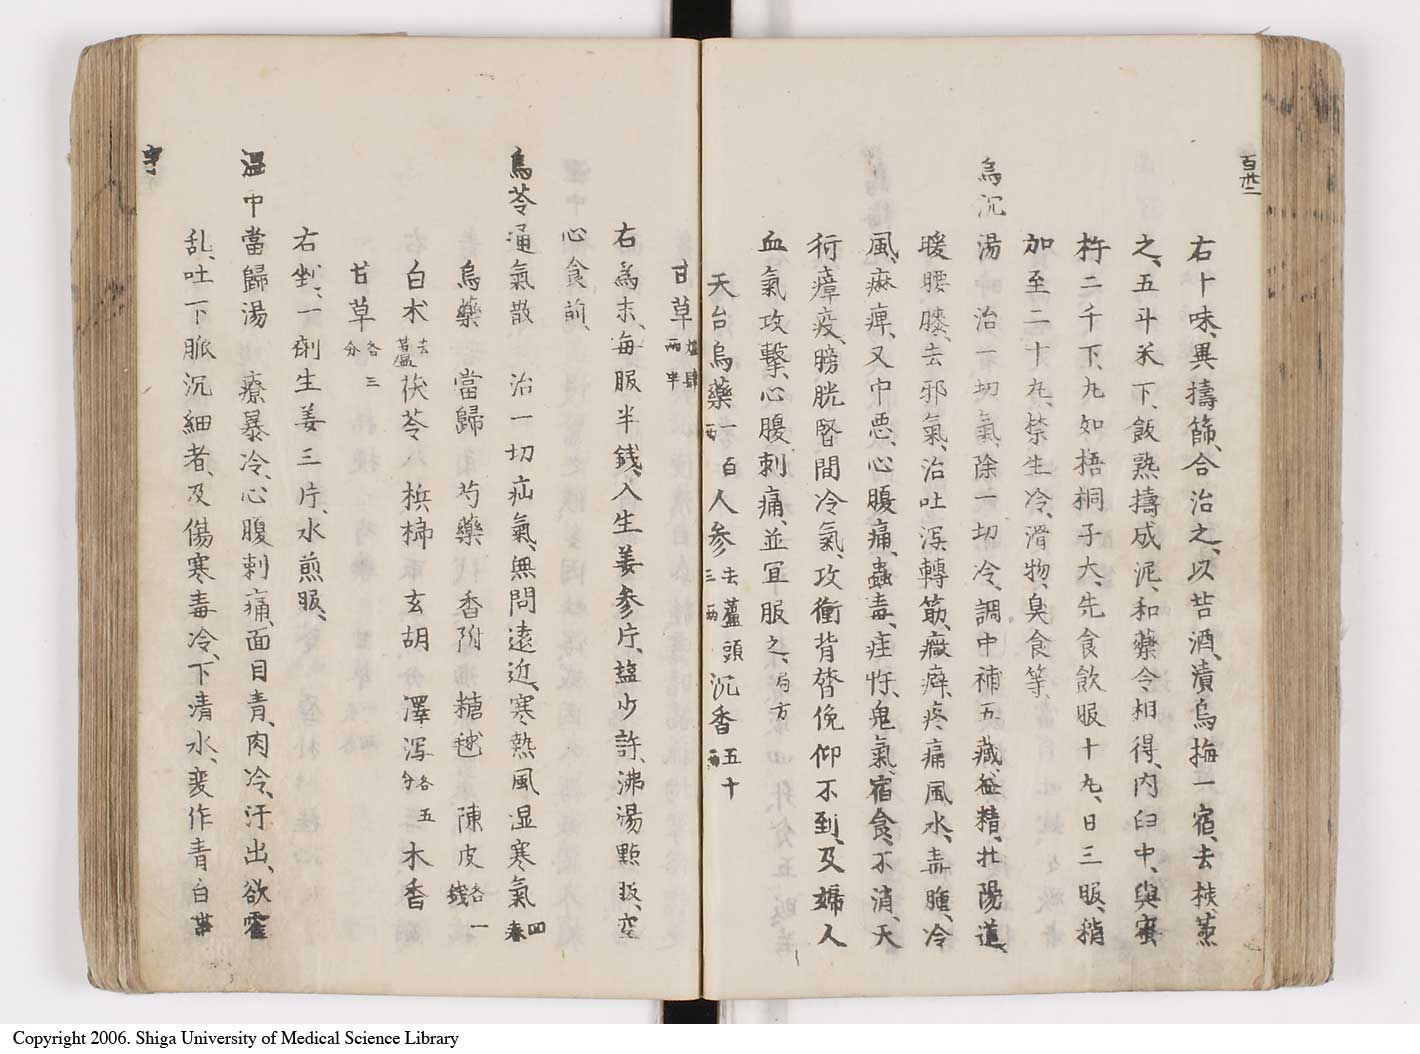 百廿二
右十味、異擣篩、合治之、以苦酒、漬烏梅一宿、去核、蒸
之、五斗米下、飯熟擣成泥、和藥令相得、內臼中、與蜜
杵二千下、丸如梧桐子大、先食飲服十丸、日三服、稍
加至二十丸、禁生冷、滑物、臭食等、
烏沉湯 治一切氣、除一切冷、調中補五藏、益精、壯陽道、
暖腰膝、去邪氣、治吐瀉轉筋、癥癖、疼痛風水、毒腫、冷
風、麻痺、又中惡、心腹痛、蠱毒、疰忤、鬼氣、宿食、不消、天
行瘴疫、膀胱腎間冷氣、攻衝背膂俛仰不到、及婦人
血氣攻擊、心腹刺痛、並宜服之、局方
天台烏藥一百兩 人參去蘆頭三兩 沉香五十兩
甘草爁肆兩半
右為末、每服半錢、入生姜叁片、塩少許、沸湯點服、空
心食前、
烏苓通氣散 治一切疝氣、無問遠近、寒熱風湿寒氣 四春
烏藥 當歸 芍藥 香附 糖毬 陳皮各一錢
白朮去蘆 茯苓 檳榔 玄胡 澤瀉各五分 木香
甘草各三分
右剉、一劑生姜三片、水煎服、
溫中當歸湯 療暴冷、心腹刺痛、面目青、肉冷、汗出、欲霍
乱、吐下脈沉細者、及傷寒毒冷、下清水、変作青白